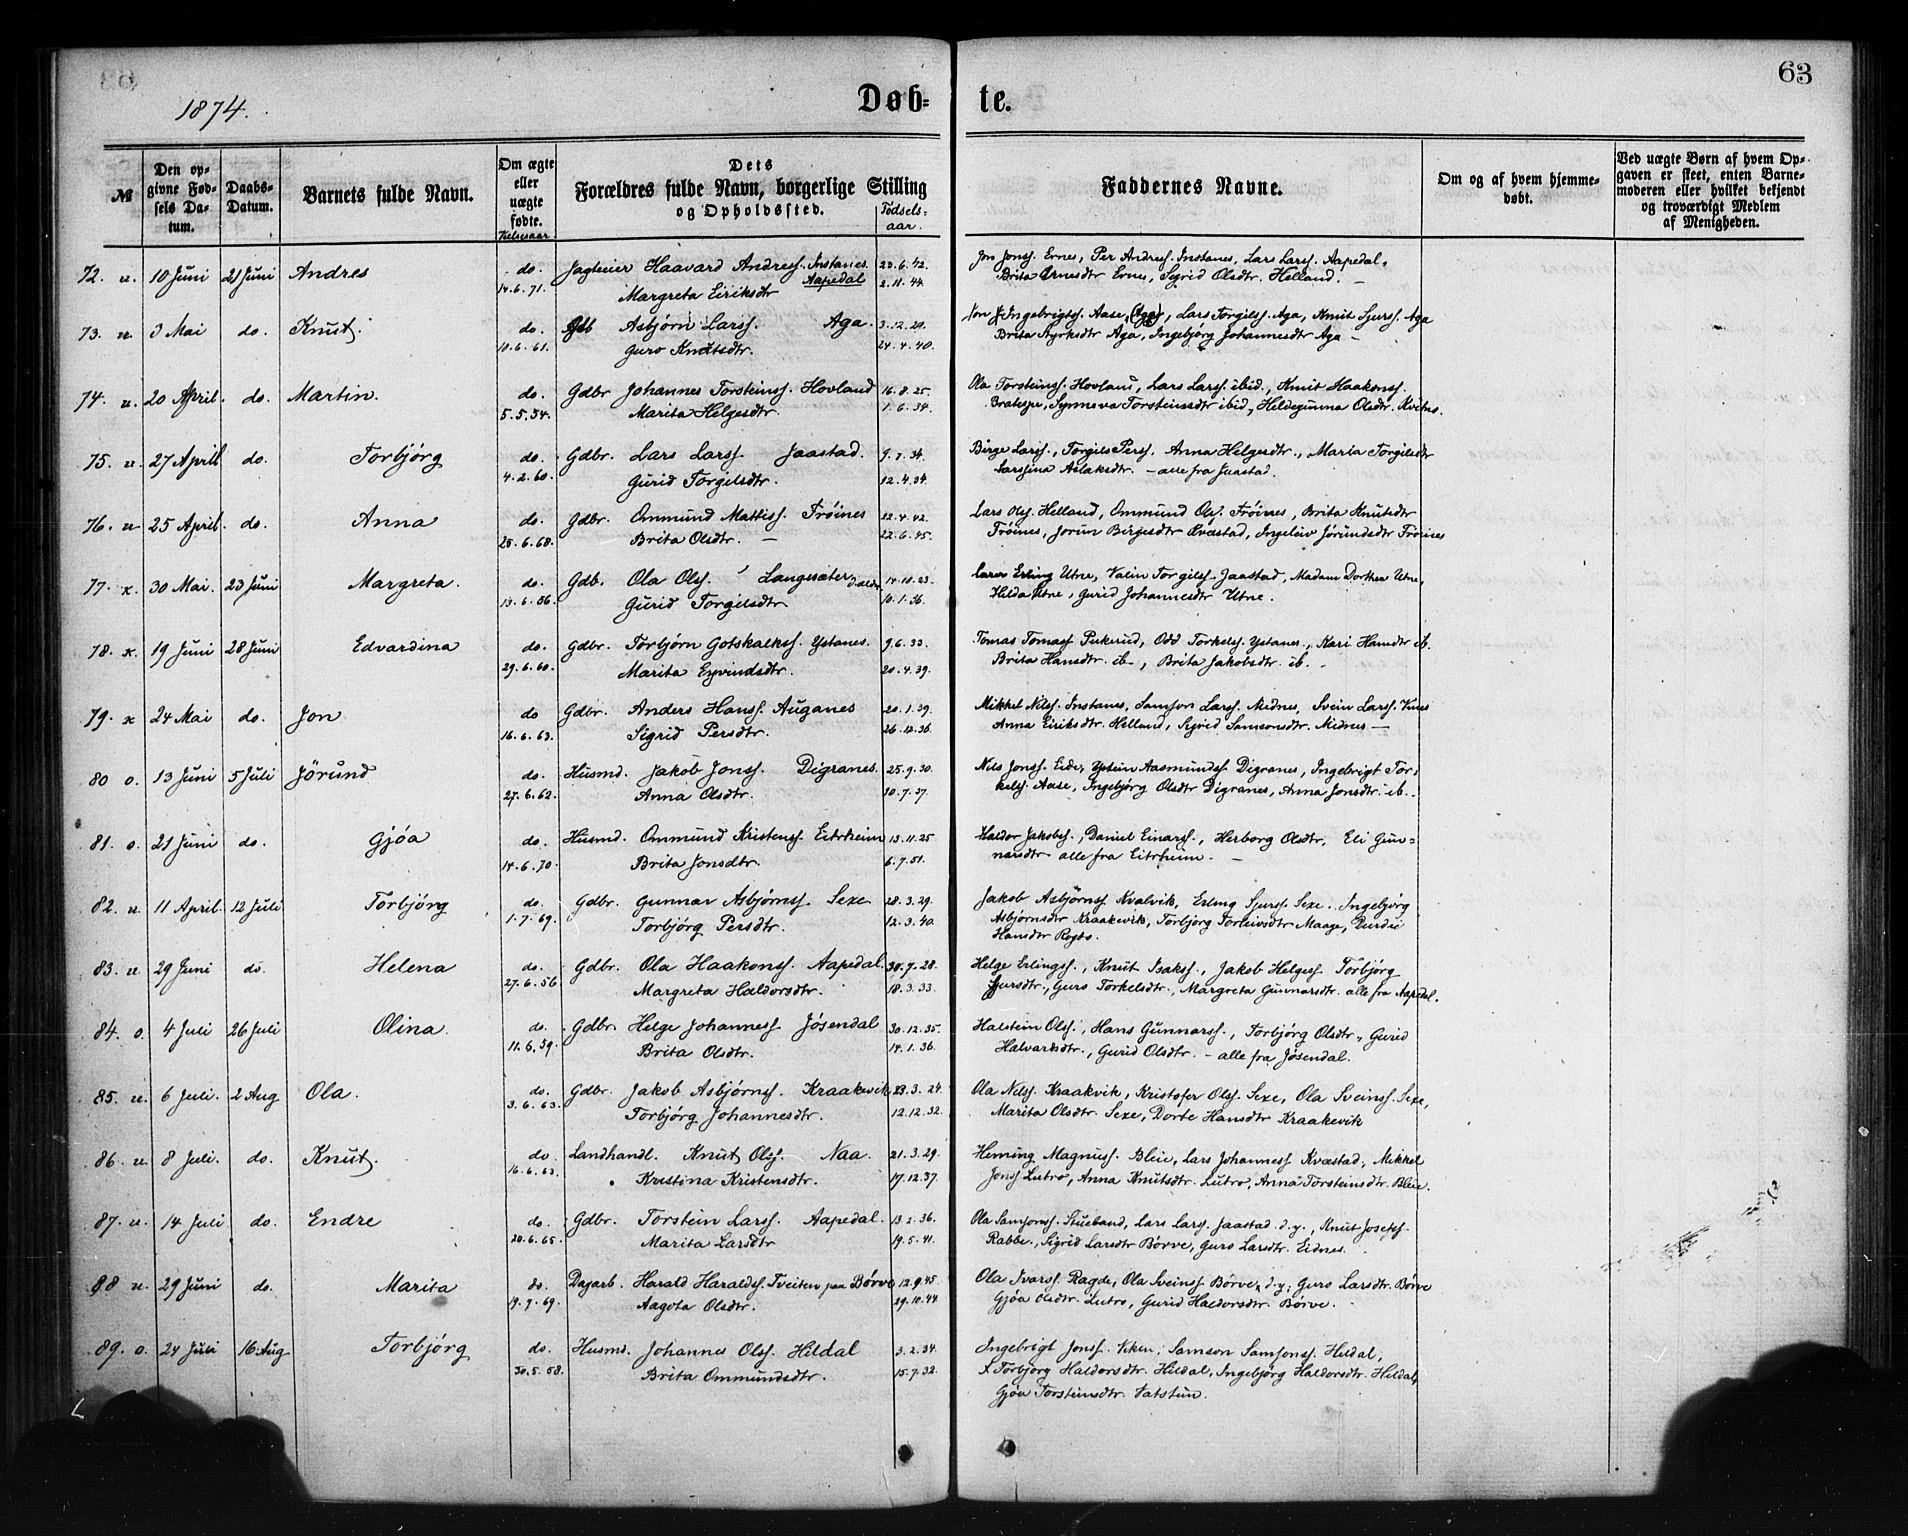 63
1874.
Døb- te.
№
Den opgivne Fødsels Datum.
Daabs-Datum.
Barnets fulde Navn.
Om ægte eller uægte fødte.
Vielsesaar
Dets Forældres fulde Navn, borgerlige Stilling og Opholdssted.
Fødselsaar.
Faddernes Navne.
Om og af hvem hjemmedøbt.
Ved uægte Børn af hvem Opgaven er skeet, enten Barnemoderen eller hvilket bekjendt og troværdigt Medlem af Menigheden.
72. u. 10 Juni 21 Juni Andres do. Jagteier Haavard Andress. Instanes 23.6.42. Jon Jonss. Ernes, Per Andress. Instanes, Lars Larss. Aapedal,
14.6.71. Margreta Eiriksdtr Aapedal 2.11.44. Brita Ernesdtr Ernes, Sigrid Olsdtr. Helland. —
73. u. 3 Mai do. Knut. do. Gdb Asbjørn Larss. Aga. 3.12.20. Jon Ingebrigtss. Aase, (Aga), Lars Torgilss. Aga, Knut Sjurss. Aga
10.6.61. Guro Knutsdtr. 24.4.40. Brita Styrksdtr Aga, Ingebjørg Johannesdtr Aga —
74. u. 20 April. do. Martin. do. Gdbr Johannes Torsteinss. Hovland 16.8.25. Ola Torsteinss. Hovland, Lars Larss. ibid., Knut Haakonss.
5.5.54. Marita Helgesdtr. 1.6.34. Bratespe, Synneva Torsteinsdtr ibid, Heldegunna Olsdtr. Kvitno.
75. u. 27 April do. Torbjørg do. Gdbr. Lars Larss. Jaastad. 9.7.34. Birge Larss., Torgils Perss, Anna Helgesdtr., Maria Torgilsdtr
4.2.60. Gurid Torgilsdtr. 12.4.34. Larssina Aslaksdtr. — alle fra Jaastad.
76. u 25 April. do. Anna do. Gdbr. Ommund Mattiss. Frøines 22.4.42. Lars Olss. Helland, Ommund Olss. Frøines, Brita Knutsdtr
25.6.68. Brita Olsdtr. — 22.6.45. Frøines, Jorun Birgesdtr Kvæstad, Ingeleiv Jørundsdtr Frøines
77. x. 30 Mai. 23 Juni Margreta. do. Gdb. Ola Olss. Langesæter 14.10.23. Erling Utne, Torgilss. Jaastad, Madam Dorthea Utne,
13.6.56. Gurid Torgilsdtr 10.1.36. Hilda Utne, Gurid Johannesdtr Utne.
78. x. 19 Juni 28 Juni Edvardina do. Gdbr. Torbjørn Gotskalkss. Ystanes. 9.6.33. Tomas Tomass. Pukerud, Odd Torkelss. Ystanes, Kari Hansdtr ib.
29.6.60. Marita Eyvindsdtr. 20.4.39. Brita Hansdtr. ib—, Brita Jakobsdtr. ib. —
79. x 24 Mai do. Jon do Gdbr. Anders Hanss. Auganes 20.1.39. Mikkel Nilss. Instanes, Samson Larss. Midnes, Svein Larss. Vines
16.6.63. Sigrid Persdtr. 26.12.36. Anna Eiriksdtr. Helland, Sigrid Samsonsdtr. Midnes —
80 o. 13 Juni 5 Juli Jörund do. Husmd. Jakob Jonss. Digranes. 25.9.30. Nils Jonss. Eide, Ystein Aasmundss. Digranes, Ingebrigt Tor-
27.6.62. Anna Olsdtr. 10.7.37. kelss. Aase, Ingebjørg Olsdtr Digranes, Anna Jonsdtr. ib.
81. o. 21 Juni do. Gjøa do. Husmd. Ommund Kristenss. Eitrheim 13.11.25 Haldor Jakobss., Daniel Einarss., Herborg Olsdtr, Eli Gun-
14.6.70. Brita Jonsdtr. 6.7.51. narsdtr alle fra Eitrheim. —
82. u. 11 April. 12 Juli Torbjørg do. Gdbr. Gunnar Asbjørnss. Sexe 28.3.29. Jakob Asbjørnss Kvalvik, Erling Sjurss. Sexe. Ingebjørg
1.7.69. Torbjørg Persdtr. 12.3.40. Asbjørnsdtr Kraakevik, Torbjørg Torleivsdtr Maage,
Hansdtr
83. u. 29 Juni do. Helena do. Gdbr. Ola Haakonss. Aapedal. 30.7.28. Helge Erlingss., Knut Isakss., Jakob Helgess Torbjørg
27.6.56. Margreta Haldorsdtr. 18.3.33. Sjursdtr., Guro Torkelsdtr., Margreta Gunnarsdtr. alle fra Aapedal.
84. o. 4 Juli 26 Juli Olina. do. Gdbr. Helge Johanness Jøsendal 30.12.35. Halstein Olss., Hans Gunnarss., Torbjørg Olsdtr., Gurid
11.6.59. Brita Olsdtr. 14.1.36. Halvarsdtr., Gurid Olsdtr. — alle fra Jøsendal.
85. u. 6 Juli. 2 Aug Ola. do. Gdbr. Jakob Asbjørnss. Kraakevik 23.3.24. Ola Nilss. Kraakvik, Kristofer Olss. Sexe, Ola Sveinss. Sexe,
3.6.63. Torbjørg Johannesdtr. 12.12.32. Marita Olsdtr. Sexe, Dorte Hansdtr Kraakevik
86. u. 8 Juli. do. Knut. do. Landhandl. Knut Olss. Naa. 21.3.29. Heming Magnuss. Bleie, Lars Johanness Kvæstad, Mikkel
16.6.63. Kristina Kristensdtr. 17.12.37. Jonss Lutro, Anna Knutsdtr. Lutro, Anna Torsteinsdtr. Bleie.
87. u. 14 Juli do. Endre do. Gdbr. Torstein Larss. Aapedal. 13.2.36. Ola Samsonss. Stueland, Lars Larss. Jaastad d.y., Knut Josefss.
20.6.65. Marita Larsdtr 19.5.41. Rabbe., Sigrid Larsdtr Børve, Guro Larsdtr. Eidnes.
88 u. 29 Juni do. Marita do. Dagarb. Harald Haraldss. Tveiten paa Børve 12.9.45 Ola Ivarss. Ragde, Ola Sveinss Børve, d.y; Guro Larsdtr. Børve
19.7.69. Aagota Olsdtr. 29.10.44 Gjøa Olsdtr. Lutro, Gurid Haldorsdtr. Børve.
89. o. 24 Juli 16 Aug Torbjørg do. Husmd. Johannes Olss. Hildal 3.2.34. Ingebrigt Jonss. Viken, Samson Samsonss. Hildal,
30.5.58. Brita Ommundsdtr. 15.7.32. Torbjørg Haldorsdtr. Hildal, Ingebjørg Haldorsdtr. Hildal,
Gjøa Torsteinsdtr. Vatstun.